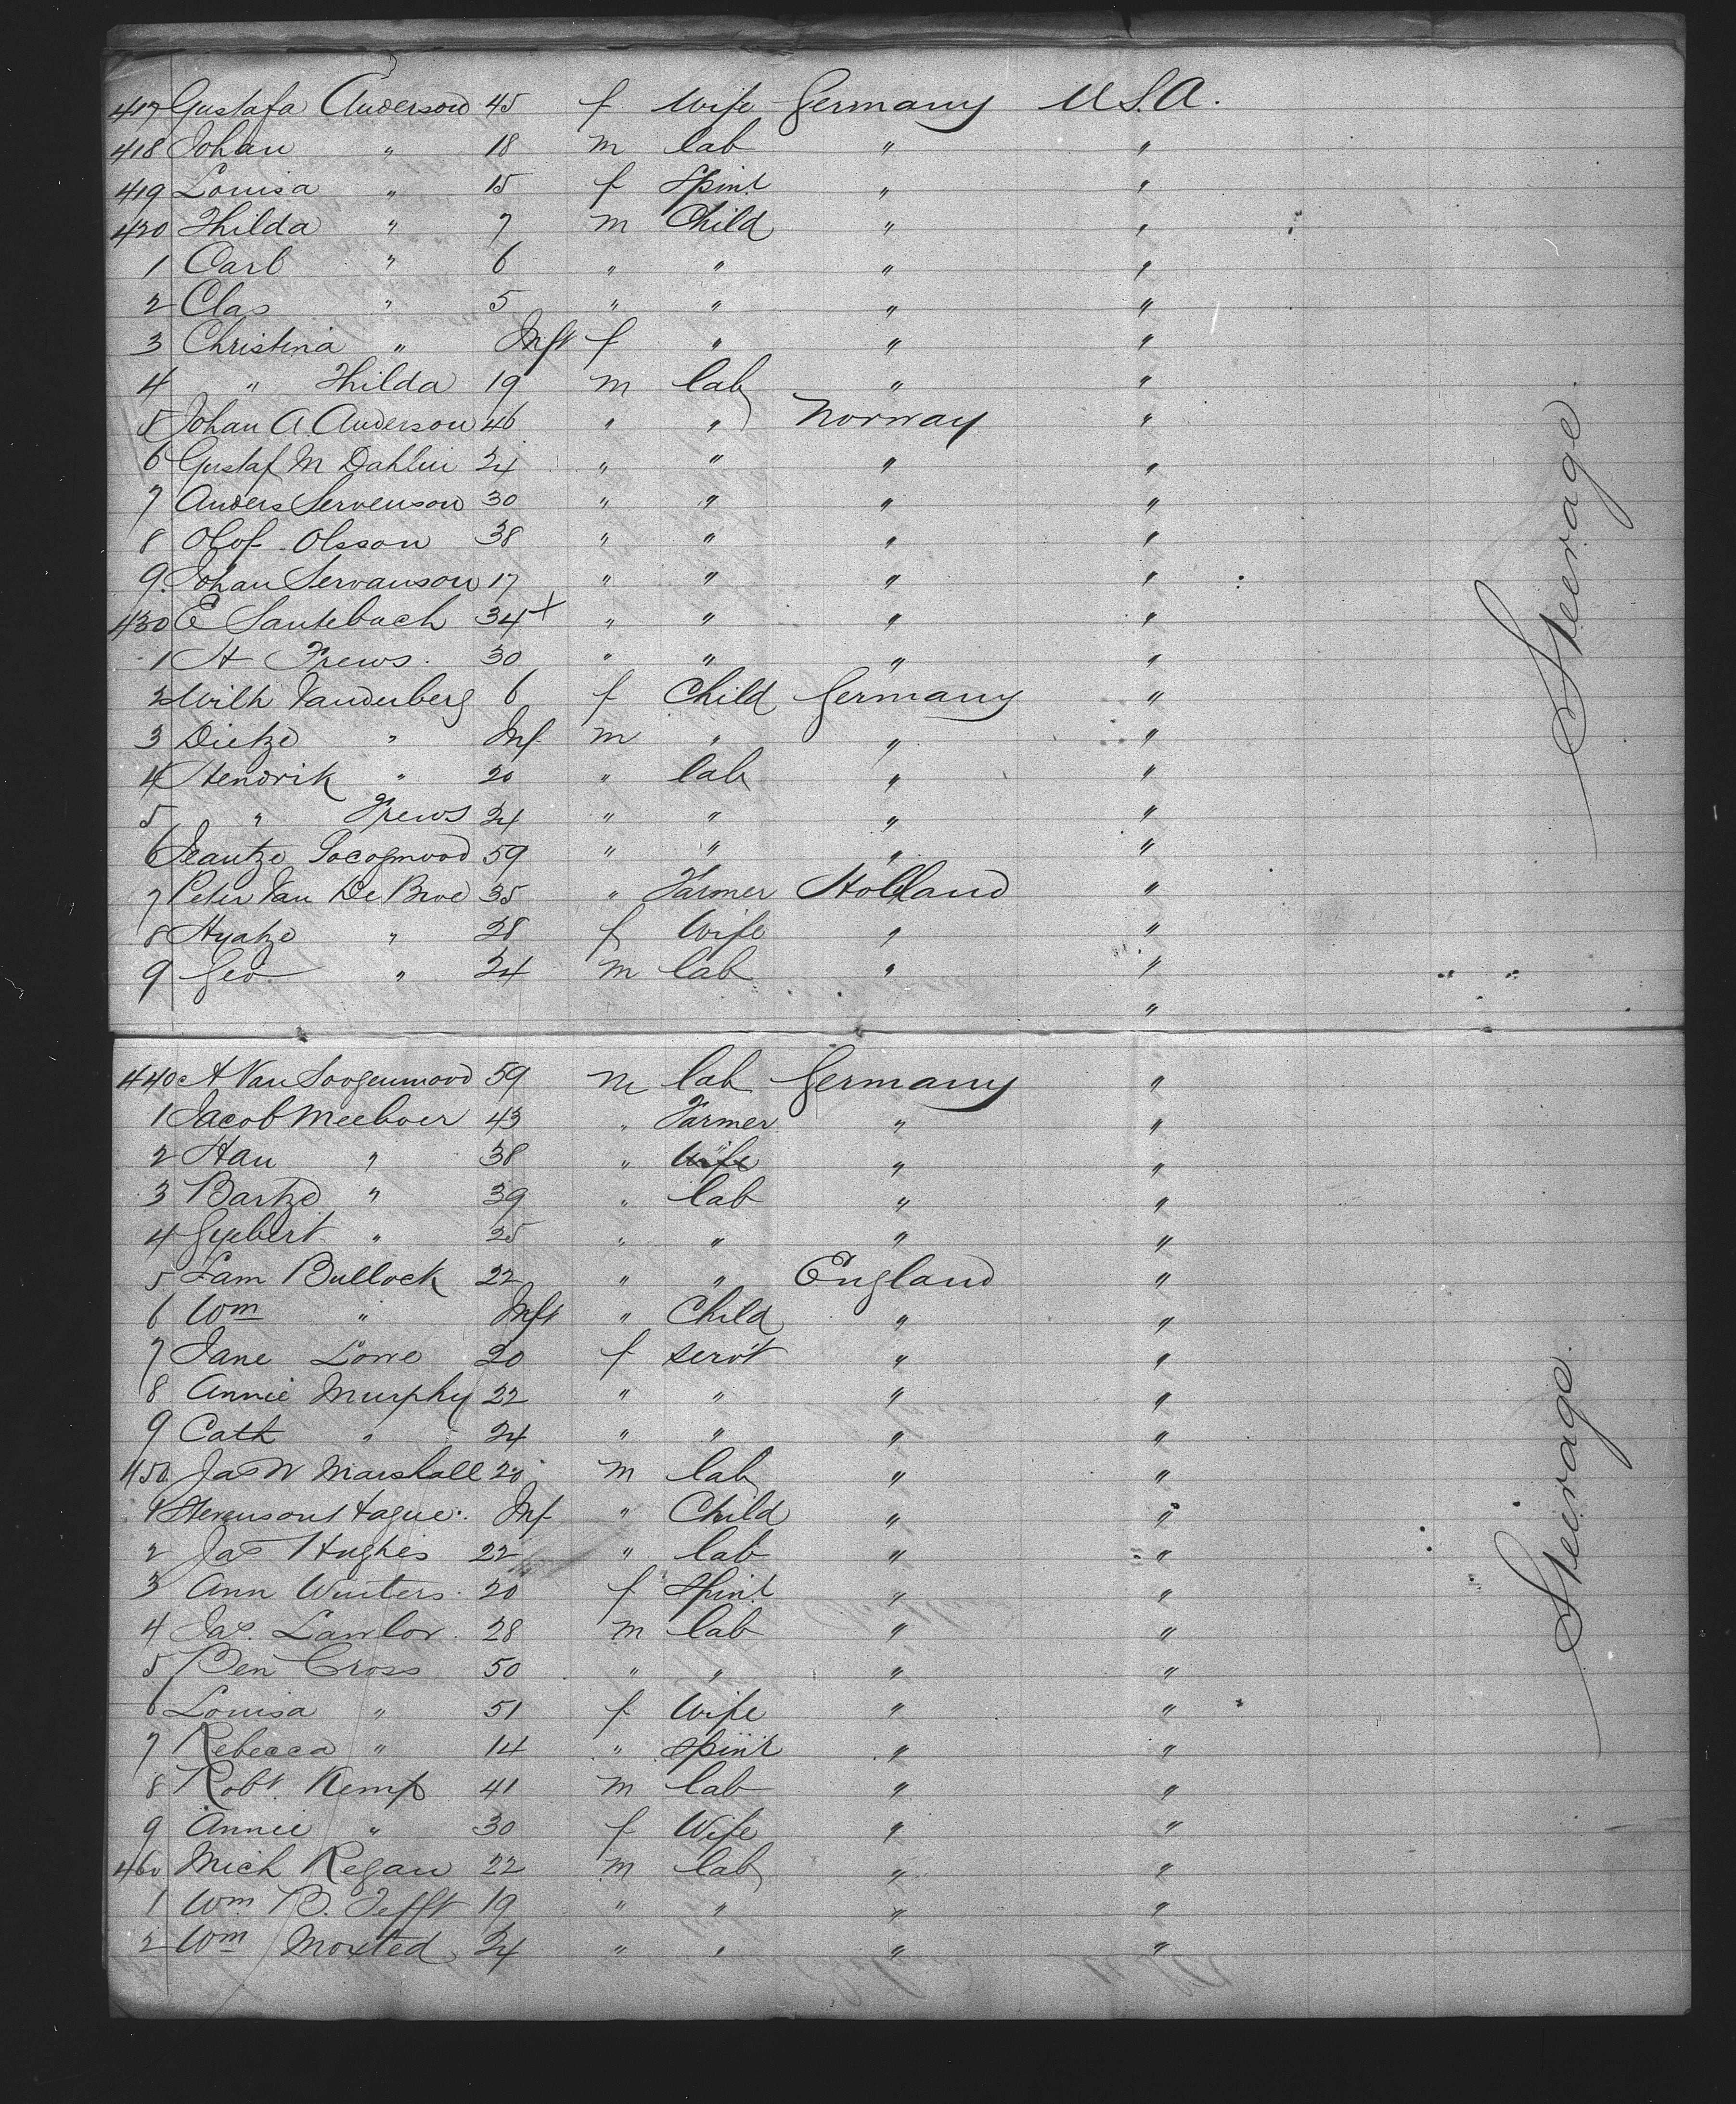 417 Gustafa Anderson 45 f Wife Germany U.S.A.
418 Johan " 18 m lab " "
419 Louisa " 15 f Spint " "
420 Thilda " 7 m Child " "
1 Carl " 6 " " " "
2 Clas " 5 " " " "
3 Christina " Inft f " " "
4 " Thilda 19 m lab " "
5 Johan A. Anderson 46 " " Norway "
6 Gustaf M Dahlin 24 " " " "
7 Anders Servenson 30 " " " "
8 Olof Olsson 38 " " " "
9 Johan Servanson 17 " " " "
430 E Sautebach 34 + " " " "
1 H Frews. 30 " " " "
2 Wilh Vanderberg 6 f Child Germany "
3 Dietze " Inf m " " "
4 Hendrik " 20 " lab " "
5 " Frews 24 " " " "
6 59 " " " "
7 Peter Van De Broe 35 " Farmer Holland "
8 Hyatze " 28 f Wife " "
9 Geo " 24 m lab " "
"
Steerage
440 A Van Soogenmood 59 m lab Germany "
1 Jacob Meeboer 43 " Farmer " "
2 Han " 38 " Wife " "
3 Bartze " 39 " lab " "
4 Gysbert " 25 " " " "
5 Sam Bullock 22 " " England "
6 Wm " Inft " Child " "
7 Jane Lowe 20 f servt " "
8 Annie Murphy 22 " " " "
9 Cath " 24 " " " "
450 Jas W Marshall 20 m lab " "
1 Stevenson Hague. Inf " Child " "
2 Jas Hughes 22 " lab " "
3 Ann Winters. 20 f Spint " "
4 Jas. Lawlor. 28 m lab " "
5 Ben Cross 50 " " " "
6 Louisa " 51 f Wife " "
7 Rebecca " 14 " Spint " "
8 Robt. Kemp 41 m lab " "
9 Annie " 30 f Wife " "
460 Mich Regan 22 m lab " "
1 Wm B. Tefft 19 " " " "
2 Wm Moxted 24 " " " "
Steerage.